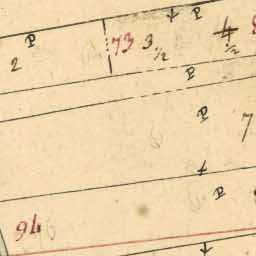 P P
2 73 3 1/2 4 1/2
P
P
7
P
94